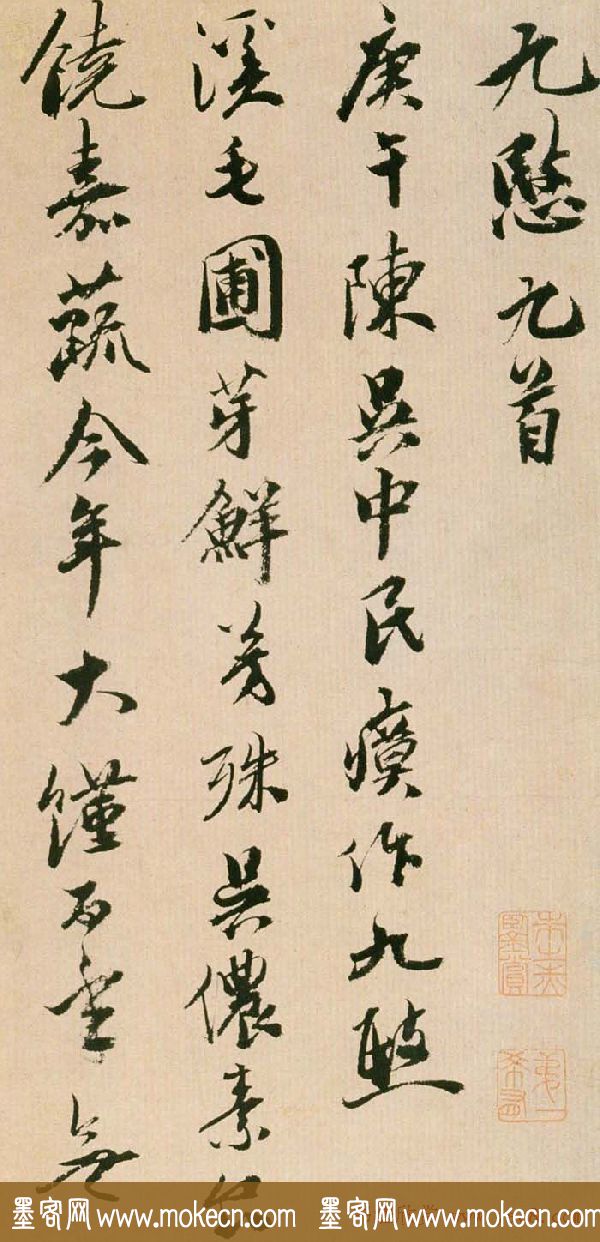 九愍九首
庚午陳吳中民瘼作九愍
溪毛圃芽鮮芳殊吳儂素
饒嘉蔬今年大饉
墨客网 www.mokecn.com 墨客网 www.mokecn.com